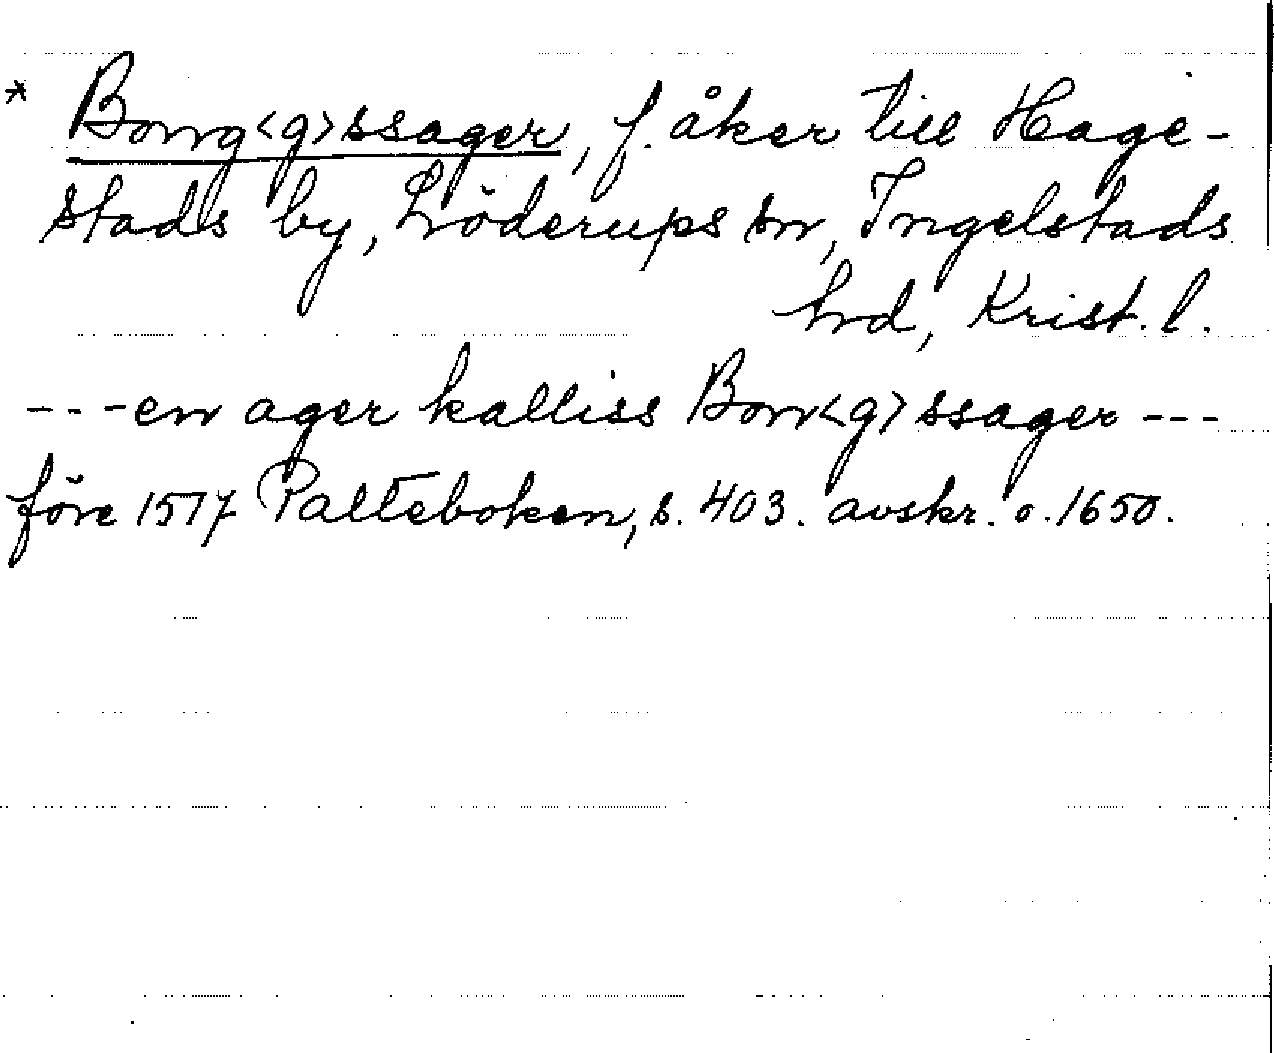 * Bonng<g>ssager, f. åker till Hage-
stads by, Löderups sn, Ingelstads
hrd, Krist. l.
---en ager kalliss Bonn<g>ssager---
före 1517 Palteboken, s. 403. avskr. o. 1650.